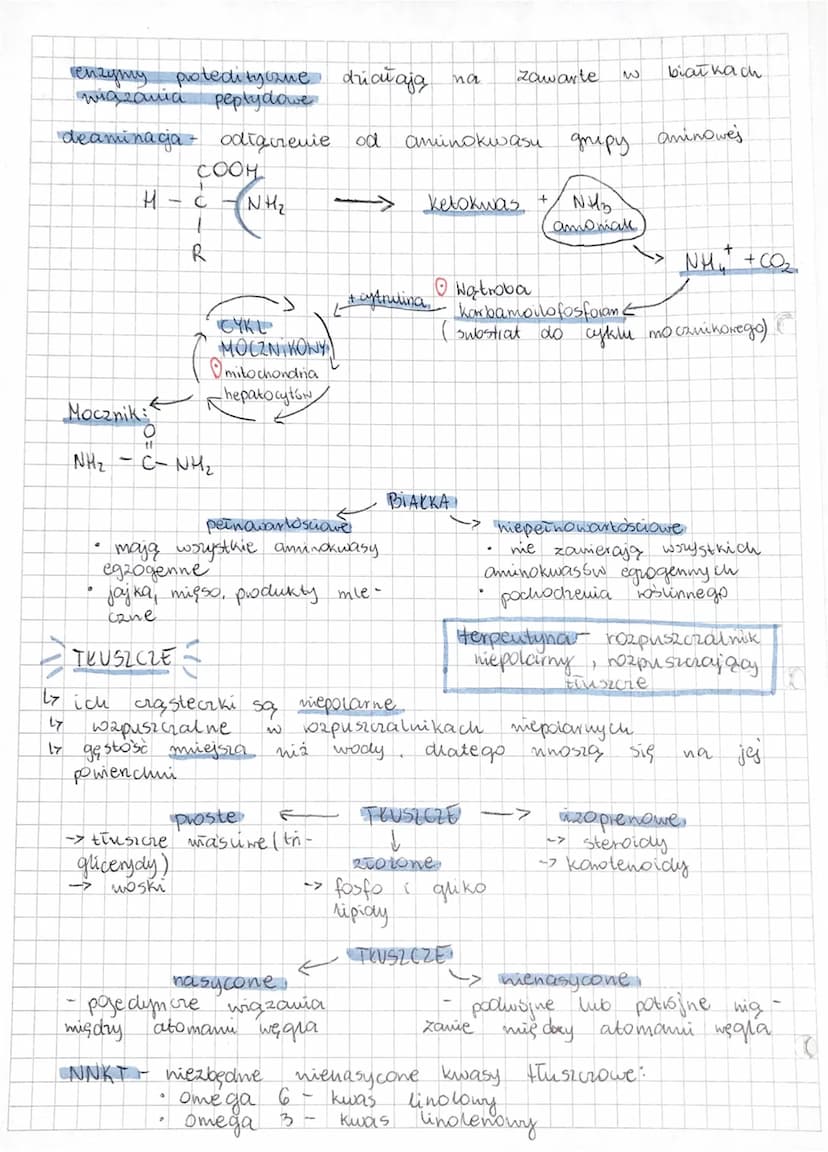 enzymy proteolityczne działają na zawarte w białkach
wiązania peptydowe
deaminacja - odłączenie od aminokwasu grupy aminowej
COOH
H - C - NH₂ → ketokwas + NH₃
amoniak
R
NH₄⁺ + CO₂
Wątroba
+ cytrulina
karbamoilofosforan
(substrat do cyklu mocznikowego)
CYKL
MOCZNIKOWY
mitochondria
hepatocytów
Mocznik:
O
NH₂ - C - NH₂
BIAŁKA
pełnowartościowe
• mają wszystkie aminokwasy
egzogenne
• jajka, mięso, produkty mle-
czne
niepełnowartościowe
• nie zawierają wszystkich
aminokwasów egzogennych
• pochodzenia roślinnego
terpentyna - rozpuszczalnik
niepolarny, rozpuszczający
tłuszcze
TŁUSZCZE
↳ ich cząsteczki są niepolarne
↳ rozpuszczalne w rozpuszczalnikach niepolarnych
↳ gęstość mniejsza niż wody, dlatego unoszą się na jej
powierzchni
proste ← TŁUSZCZE → izoprenowe
-> tłuszcze właściwe (tri-
glicerydy)
-> woski
złożone
-> fosfo i gliko
lipidy
-> steroidy
-> karotenoidy
TŁUSZCZE
nasycone
- pojedyncze wiązania
między atomami węgla
nienasycone
- podwójne lub potrójne wią-
zanie między atomami węgla
NNKT - niezbędne nienasycone kwasy tłuszczowe:
• omega 6 - kwas linolowy
• omega 3 - kwas linolenowy